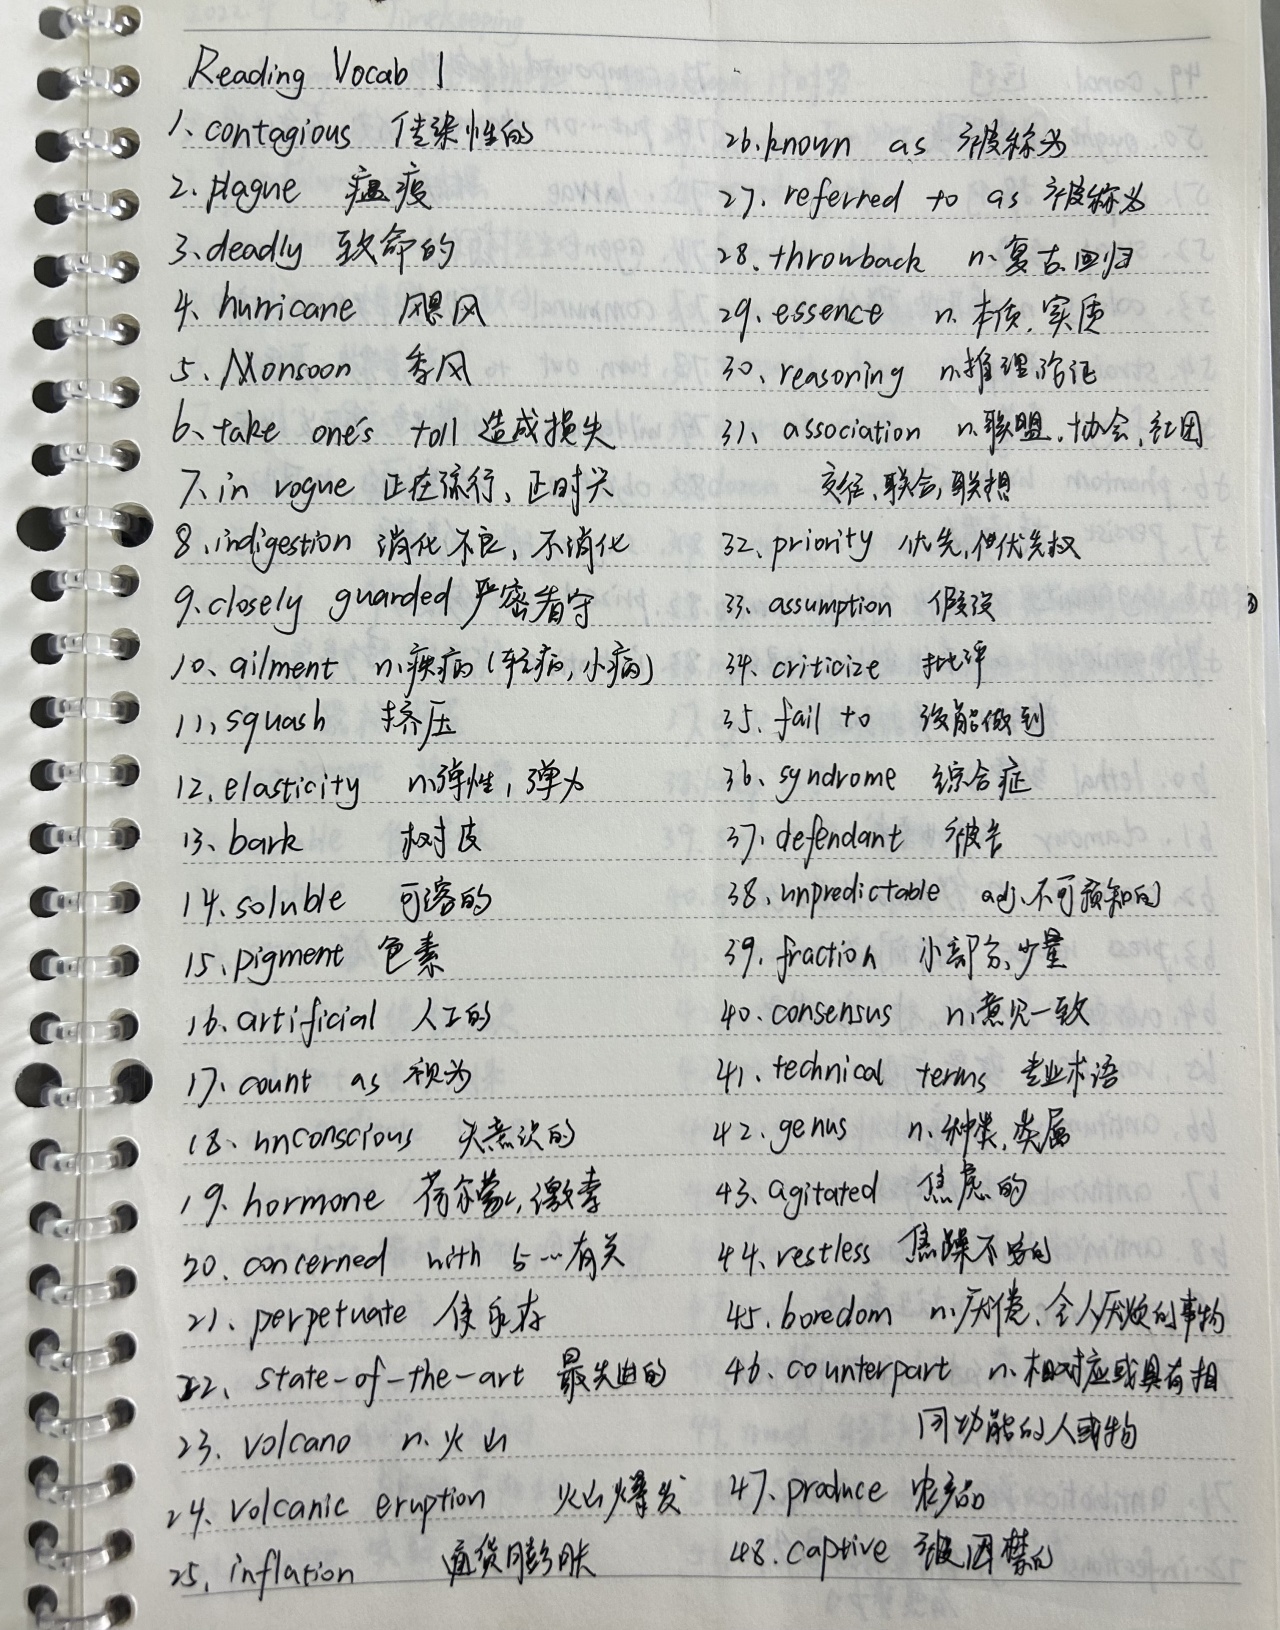 Reading Vocab 1
1. contagious 传染性的
2. plague 瘟疫
3. deadly 致命的
4. hurricane 飓风
5. Monsoon 季风
6. take one's toll 造成损失
7. in vogue 正在流行、正时兴
8. indigestion 消化不良、不消化
9. closely guarded 严密看守
10. ailment n.疾病(轻病,小病)
11. squash 挤压
12. elasticity n.弹性,弹力
13. bark 树皮
14. soluble 可溶的
15. pigment 色素
16. artificial 人工的
17. count as 视为
18. unconscious 失意识的
19. hormone 荷尔蒙,激素
20. concerned with 与…有关
21. perpetuate 使永存
22. state-of-the-art 最先进的
23. volcano n.火山
24. volcanic eruption 火山爆发
25. inflation 通货膨胀
26. known as 被称为
27. referred to as 被称为
28. throwback n.复古,回归
29. essence n.本质,实质
30. reasoning n.推理,论证
31. association n.联盟,协会,社团
交往,联合,联想
32. priority 优先,优先权
33. assumption 假设
34. criticize 批评
35. fail to 没能做到
36. syndrome 综合症
37. defendant 被告
38. unpredictable adj.不可预知的
39. fraction 小部分,少量
40. consensus n.意见一致
41. technical terms 专业术语
42. genus n.种类,类属
43. agitated 焦虑的
44. restless 焦躁不安的
45. boredom n.厌倦、令人厌烦的事物
46. counterpart n.相对应或具有相
同功能的人或物
47. produce 农产品
48. captive 被囚禁的